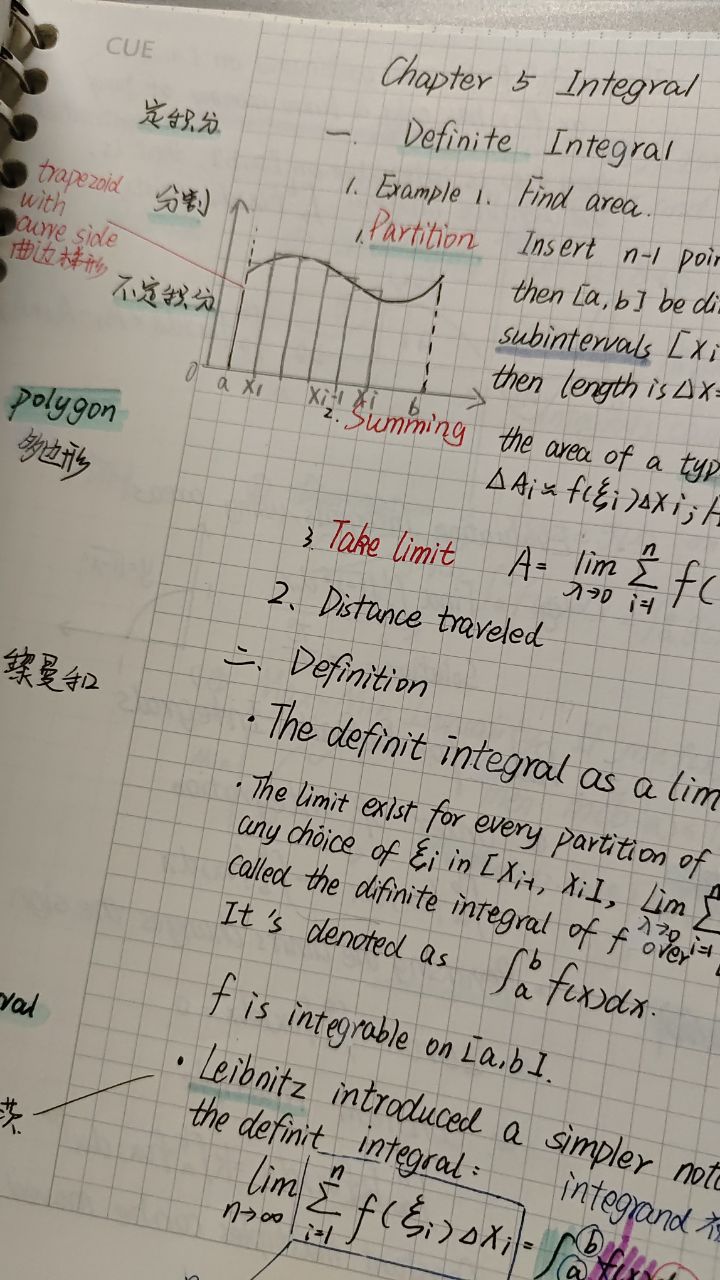 CUE
Chapter 5 Integral
定积分
一. Definite Integral
1. Example 1. Find area.
trapezoid
with
curve side
曲边梯形
分割
1. Partition Insert n-1 poin
then [a,b] be di
不定积分
subintervals [Xi
then length is ΔX=
0 a X1 Xi-1 Xi b
polygon
多边形
2. Summing
the area of a typ
ΔAi≈f(ξi)ΔXi;
3. Take limit A= lim λ→0 Σ i=1 n f(
2. Distance traveled
曼和
二. Definition
· The definit integral as a lim
· The limit exist for every partition of
any choice of ξi in [Xi-1, Xi], Lim λ→0 Σ i=1 n
called the difinite integral of f over
It's denoted as ∫ a b f(x)dx.
f is integrable on [a,b].
ral
茨
· Leibnitz introduced a simpler nota
the definit integral:
integrand
lim n→∞ Σ i=1 n f(ξi)ΔXi = ∫ a b f(x)